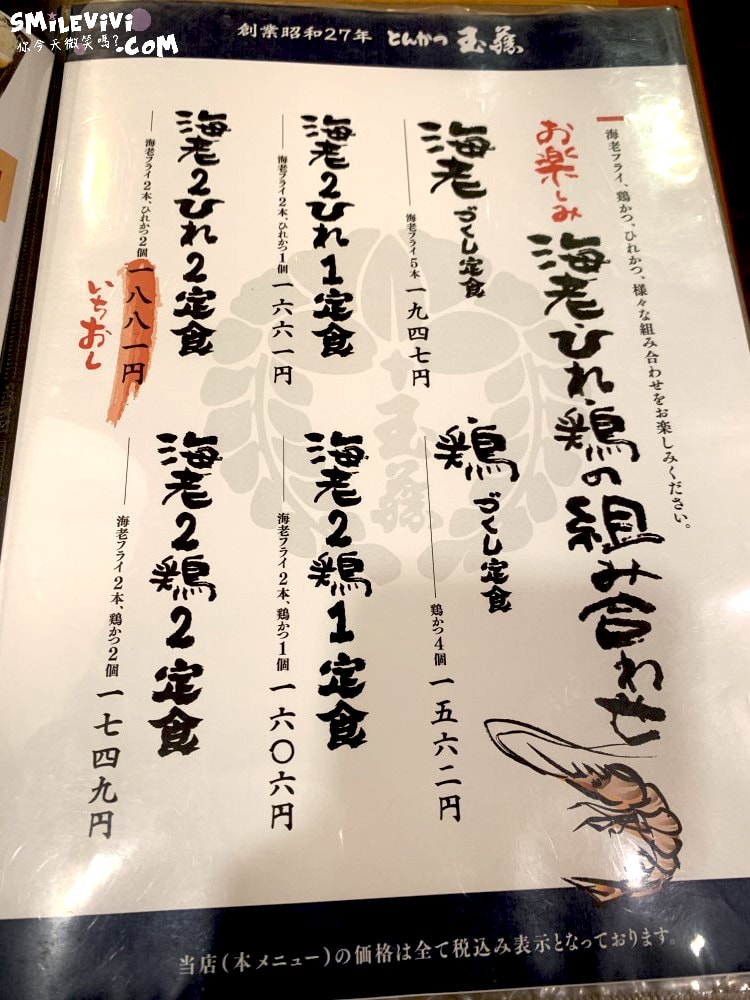 SMILEVIVI
你今天微笑嗎?.COM
創業昭和27年 とんかつ 玉藤
海老フライ、鶏かつ、ひれかつ、様々な組み合わせをお楽しみください。
お楽しみ
海老・ひれ・鶏の組み合わせ
海老づくし定食
海老フライ5本 一九四七円
鶏づくし定食
鶏かつ4個 一五六二円
海老2ひれ1定食
海老フライ2本、ひれかつ1個 一六六一円
海老2鶏1定食
海老フライ2本、鶏かつ1個 一六〇六円
海老2ひれ2定食
海老フライ2本、ひれかつ2個 一八八一円
いちおし
海老2鶏2定食
海老フライ2本、鶏かつ2個 一七四九円
玉藤
当店(本メニュー)の価格は全て税込み表示となっております。